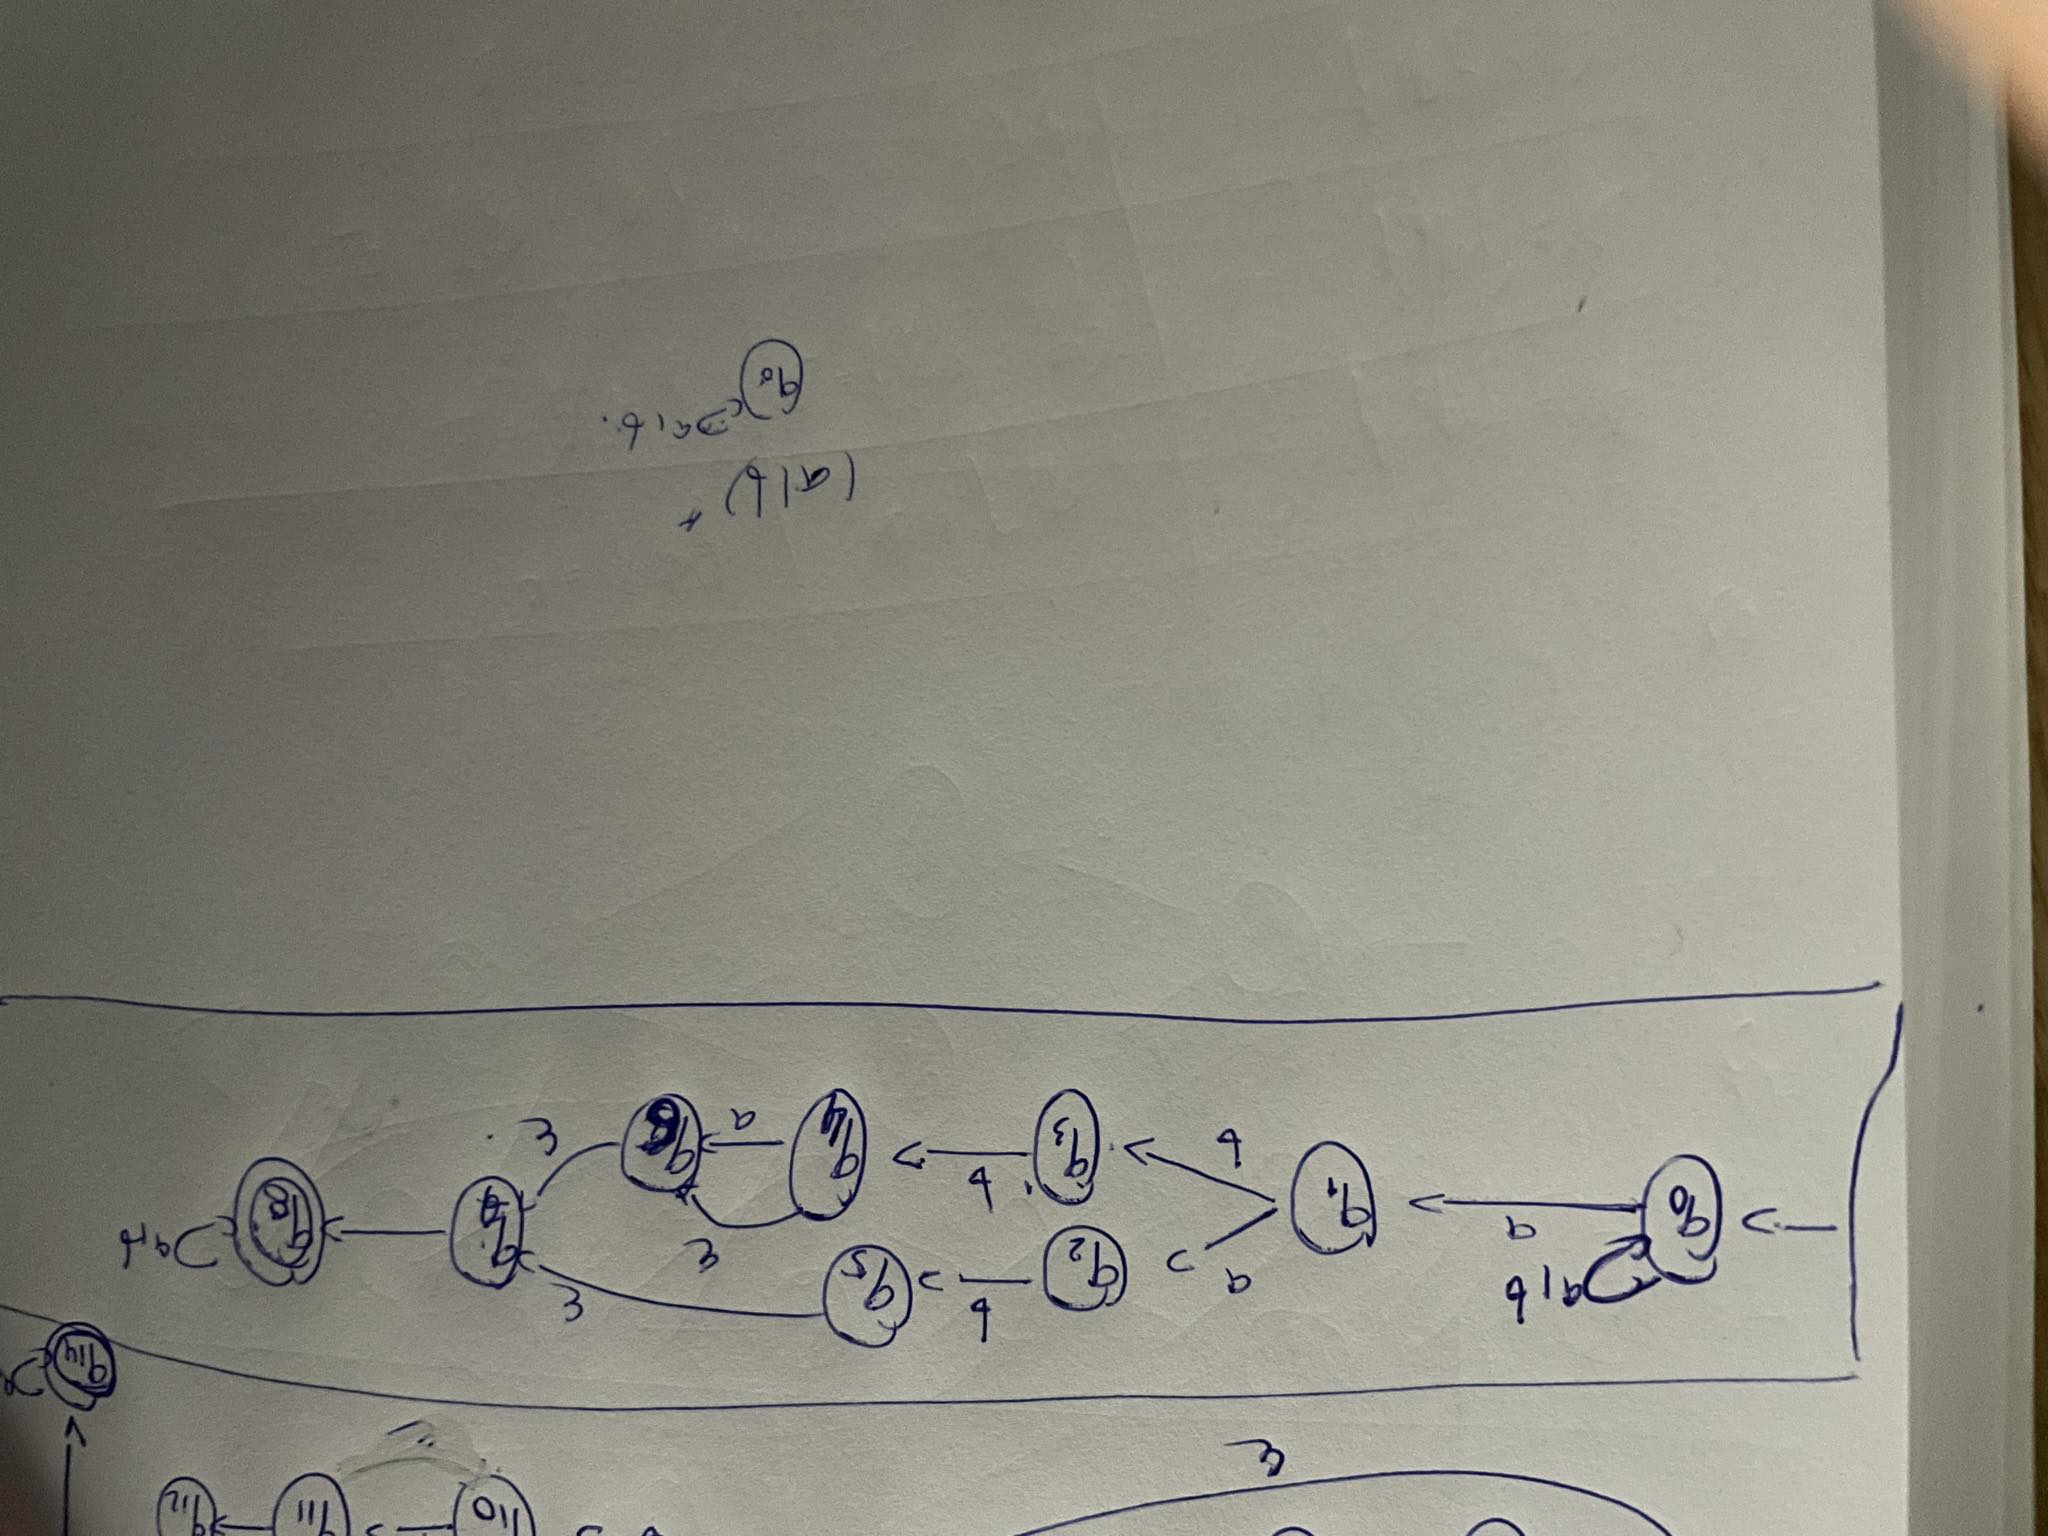 ε
q10 q11 q12
q14
a,b
a
q0
q1
a
b
q2
b
q5
ε
q3
b
q4
ε
a
q6
ε
q8
a,b
(a|b)*
q0 a,b.